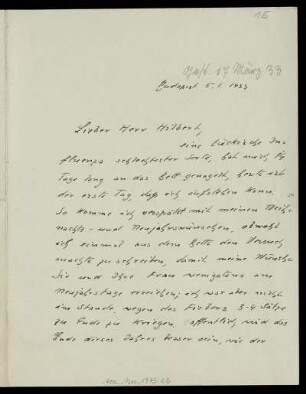 1E
17 März 33
Budapest 5.I. 1933
Lieber Herr Hilbert,
eine tückische In-
fluenza schlechtester Sorte, hat mich
Tage lang an das Bett genagelt, heute ist
der erste Tag, daß ich aufstehen kann.
So komme ich verspätet mit meinen Weih-
nachts- und Neujahrswünschen, obwohl
ich einmal aus dem Bette den Versuch
machte zu schreiben, damit meine Wünsche
Sie und Ihre Frau wenigstens am
Neujahrstage erreichen; ich war aber nicht
im Stande, wegen des Fiebers 3-4 Sätze
zu Ende zu kriegen. Hoffentlich wird das
Ende dieses Jahres besser sein, wie der